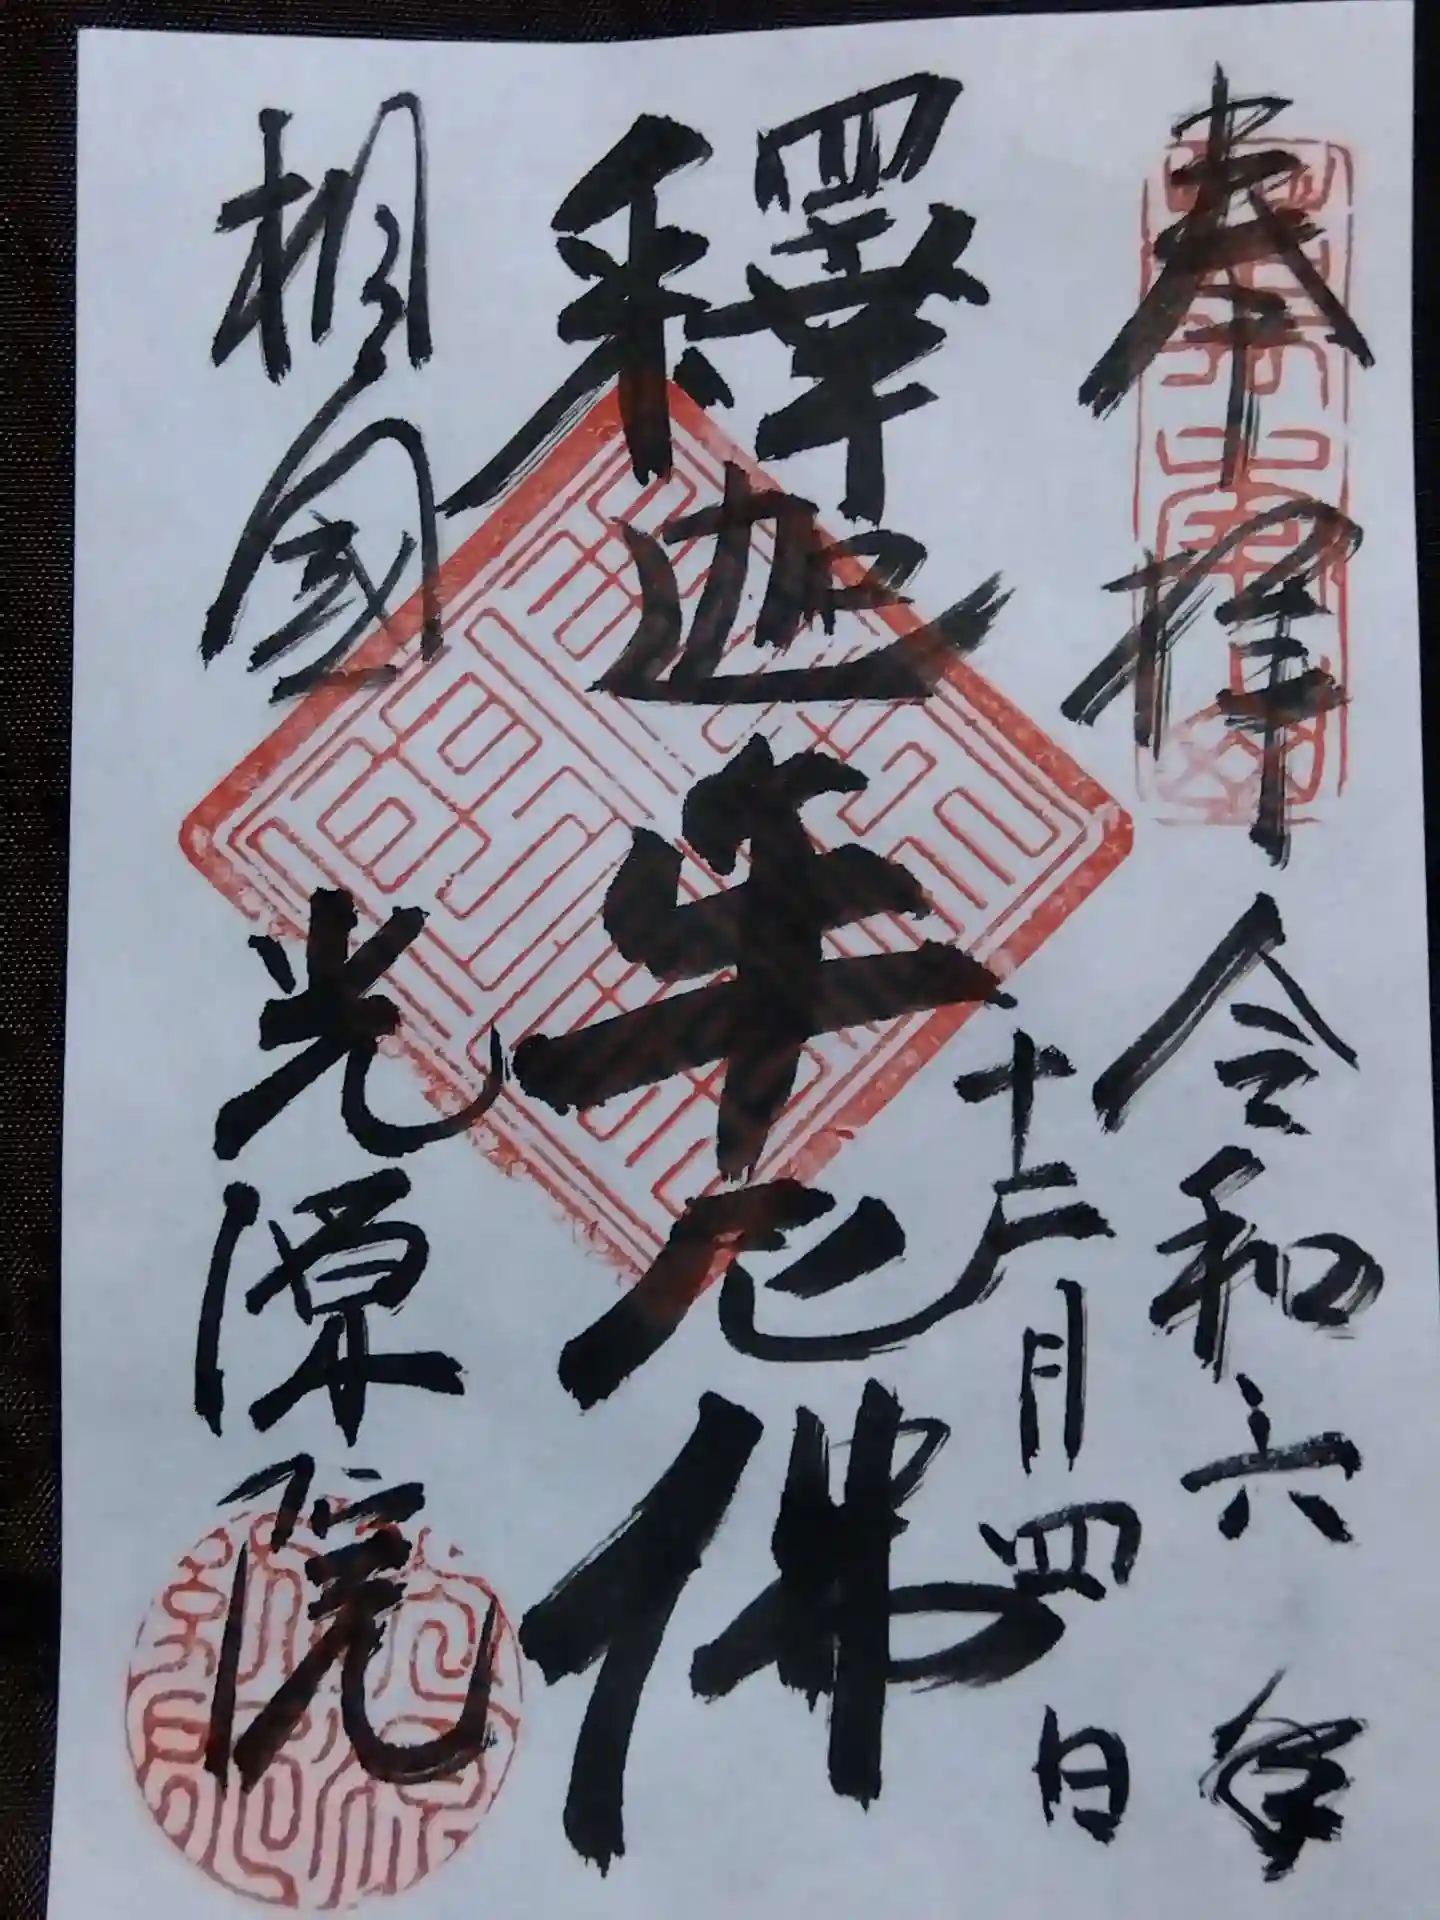 奉拝 令和六年
十二月四日
釋迦牟尼佛
相國 光源院